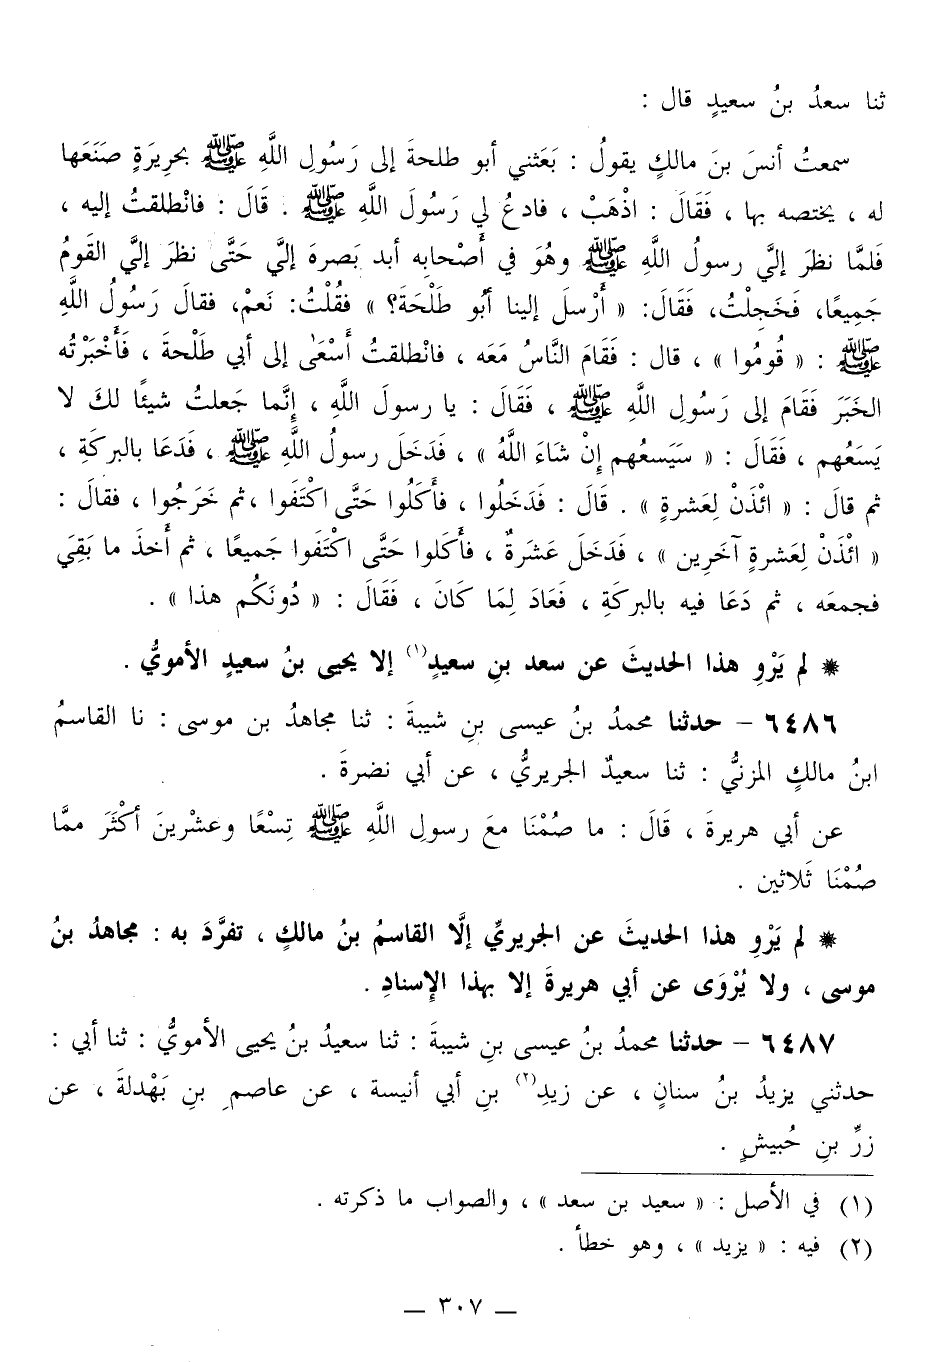 ثنا سعدُ بنُ سعيدٍ قال :
سمعتُ أنسَ بنَ مالكٍ يقولُ : بَعَثني أبو طلحةَ إلى رَسُولِ اللَّهِ ﷺ بحريرَةٍ صَنَعَها
له ، يختصه بها ، فَقَالَ : اذْهَبْ ، فادعُ لي رَسُولَ اللَّهِ ﷺ . قَالَ : فانْطلقتُ إليه ،
فَلمَّا نظرَ إليَّ رسولُ اللَّهِ ﷺ وهُوَ في أَصْحابِه أبد بَصرهَ إليَّ حَتَّى نظرَ إليَّ القَومُ
جَمِيعًا، فَخَجِلْتُ، فَقَالَ: « أَرْسلَ إلينا أبُو طَلْحَةَ؟ » فقُلْتُ: نَعمْ، فقالَ رَسُولُ اللَّهِ
ﷺ : « قُومُوا » ، قال : فَقَامَ النَّاسُ مَعَه ، فانْطلقتُ أَسْعَىٰ إلى أبي طَلْحةَ ، فَأَخْبَرْتُه
الخَبَرَ فَقَامَ إلى رَسُولِ اللَّهِ ﷺ ، فَقَالَ : يا رسولَ اللَّهِ ، إِنَّما جَعلتُ شيئًا لكَ لا
يَسَعُهم ، فَقَالَ : « سَيَسعُهم إِنْ شَاءَ اللَّهُ » ، فَدَخَلَ رسولُ اللَّهِ ﷺ ، فَدَعَا بالبركَةِ ،
ثم قالَ : « ائْذَنْ لِعَشرةٍ » . قَالَ : فَدَخَلُوا ، فأَكَلُوا حَتَّى اكْتَفَوا ،ثم خَرَجُوا ، فقالَ :
« ائْذَنْ لِعَشرةٍ آخَرِين » ، فَدَخَلَ عَشَرَةٌ ، فأكَلوا حَتَّى اكْتَفَوا جَميعًا ، ثم أَخذَ ما بَقِيَ
فجمعَه ، ثم دَعَا فيه بالبركَةِ ، فعَادَ لِمَا كَانَ ، فَقَالَ : « دُونَكُم هذا » .
* لم يَرْوِ هذا الحديثَ عن سعد بنِ سعيدٍ(١) إلا يحيى بنُ سعيدٍ الأمويُّ .
٦٤٨٦ – حدثنا محمدُ بنُ عيسى بنِ شيبةَ : ثنا مجاهدُ بن موسى : نا القاسمُ
ابنُ مالكٍ المزنيُّ : ثنا سعيدٌ الجريريُّ ، عن أبي نضرةَ .
عن أبي هريرةَ ، قَالَ : ما صُمْنَا معَ رسولِ اللَّهِ ﷺ تِسْعًا وعشْرينَ أكْثَرَ ممَّا
صُمْنَا ثَلاثين .
* لم يَرْوِ هذا الحديثَ عن الجريريِّ إلَّا القاسمُ بنُ مالكٍ ، تفرَّدَ به : مجاهدُ بنُ
موسى ، ولا يُرْوَى عن أبي هريرةَ إلا بهذا الإِسنادِ .
٦٤٨٧ – حدثنا محمدُ بنُ عيسى بنِ شيبةَ : ثنا سعيدُ بنُ يحيى الأمويُّ : ثنا أبي :
حدثني يزيدُ بنُ سنانٍ ، عن زيدِ(٢) بنِ أبي أنيسة ، عن عاصمِ بنِ بَهْدلةَ ، عن
زرِّ بنِ حُبيشٍ .
(١) في الأصل : « سعيد بن سعد » ، والصواب ما ذكرته .
(٢) فيه : « يزيد » ، وهو خطأ .
— ٣٠٧ —